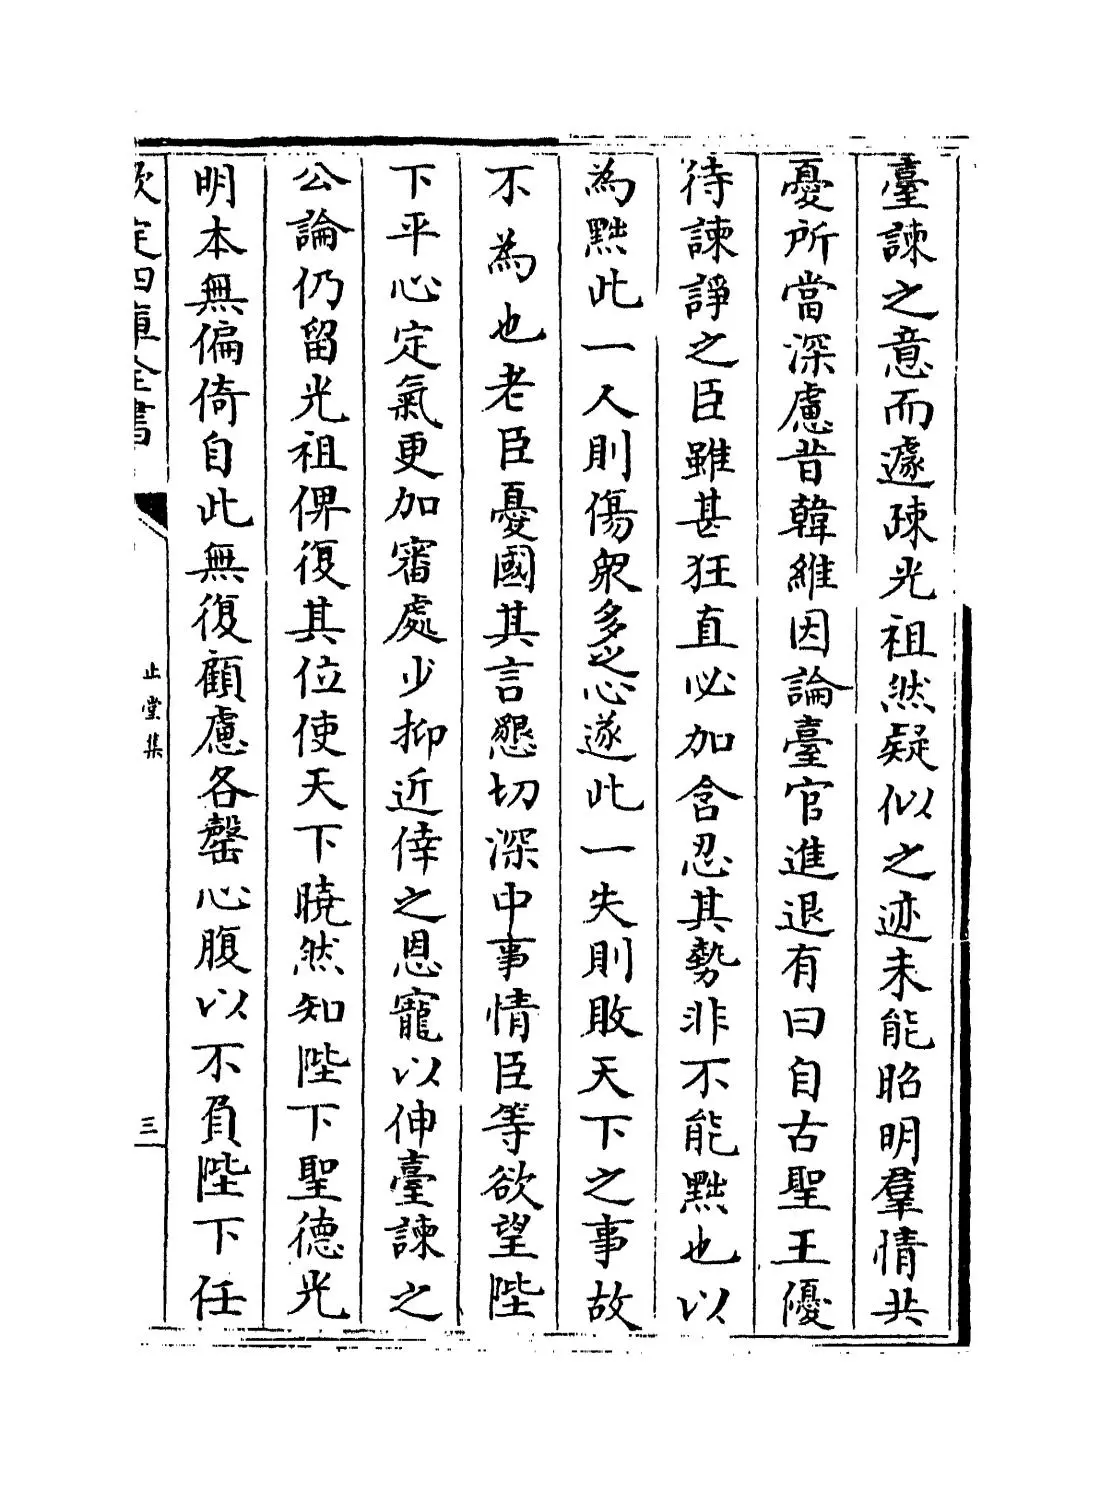 臺諫之意而遽疎光祖然疑似之迹未能昭明羣情共
憂所當深慮昔韓維因論臺官進退有曰自古聖王優
待諫諍之臣雖甚狂直必加含忍其勢非不能黜也以
為黜此一人則傷衆多之心遂此一失則敗天下之事故
不為也老臣憂國其言懇切深中事情臣等欲望陛
下平心定氣更加審處少抑近倖之恩寵以伸臺諫之
公論仍留光祖俾復其位使天下曉然知陛下聖德光
明本無偏倚自此無復顧慮各罄心腹以不負陛下任
欽定四庫全書
止堂集
三